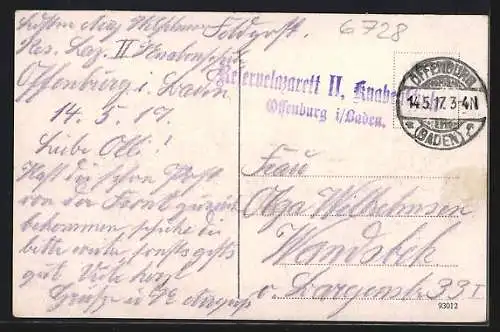 Aug. Wilhelmsen
Feldpost.
6728
Res. Laz. II Knabenschule
Offenburg i. Baden
14.5.17.
Liebe Olli!
Hast du schon Post
von der Front
bekommen, schicke die
bitte weiter, sonst gehts
gut. Viele herzl.
Grüsse
Reservelazarett II, Knabenschule
Offenburg i/Baden.
OFFENBURG
14.5.17. 3-4N
(BADEN)
Frau
Olga Wilhelmsen
Wandsbek
33 I
93012